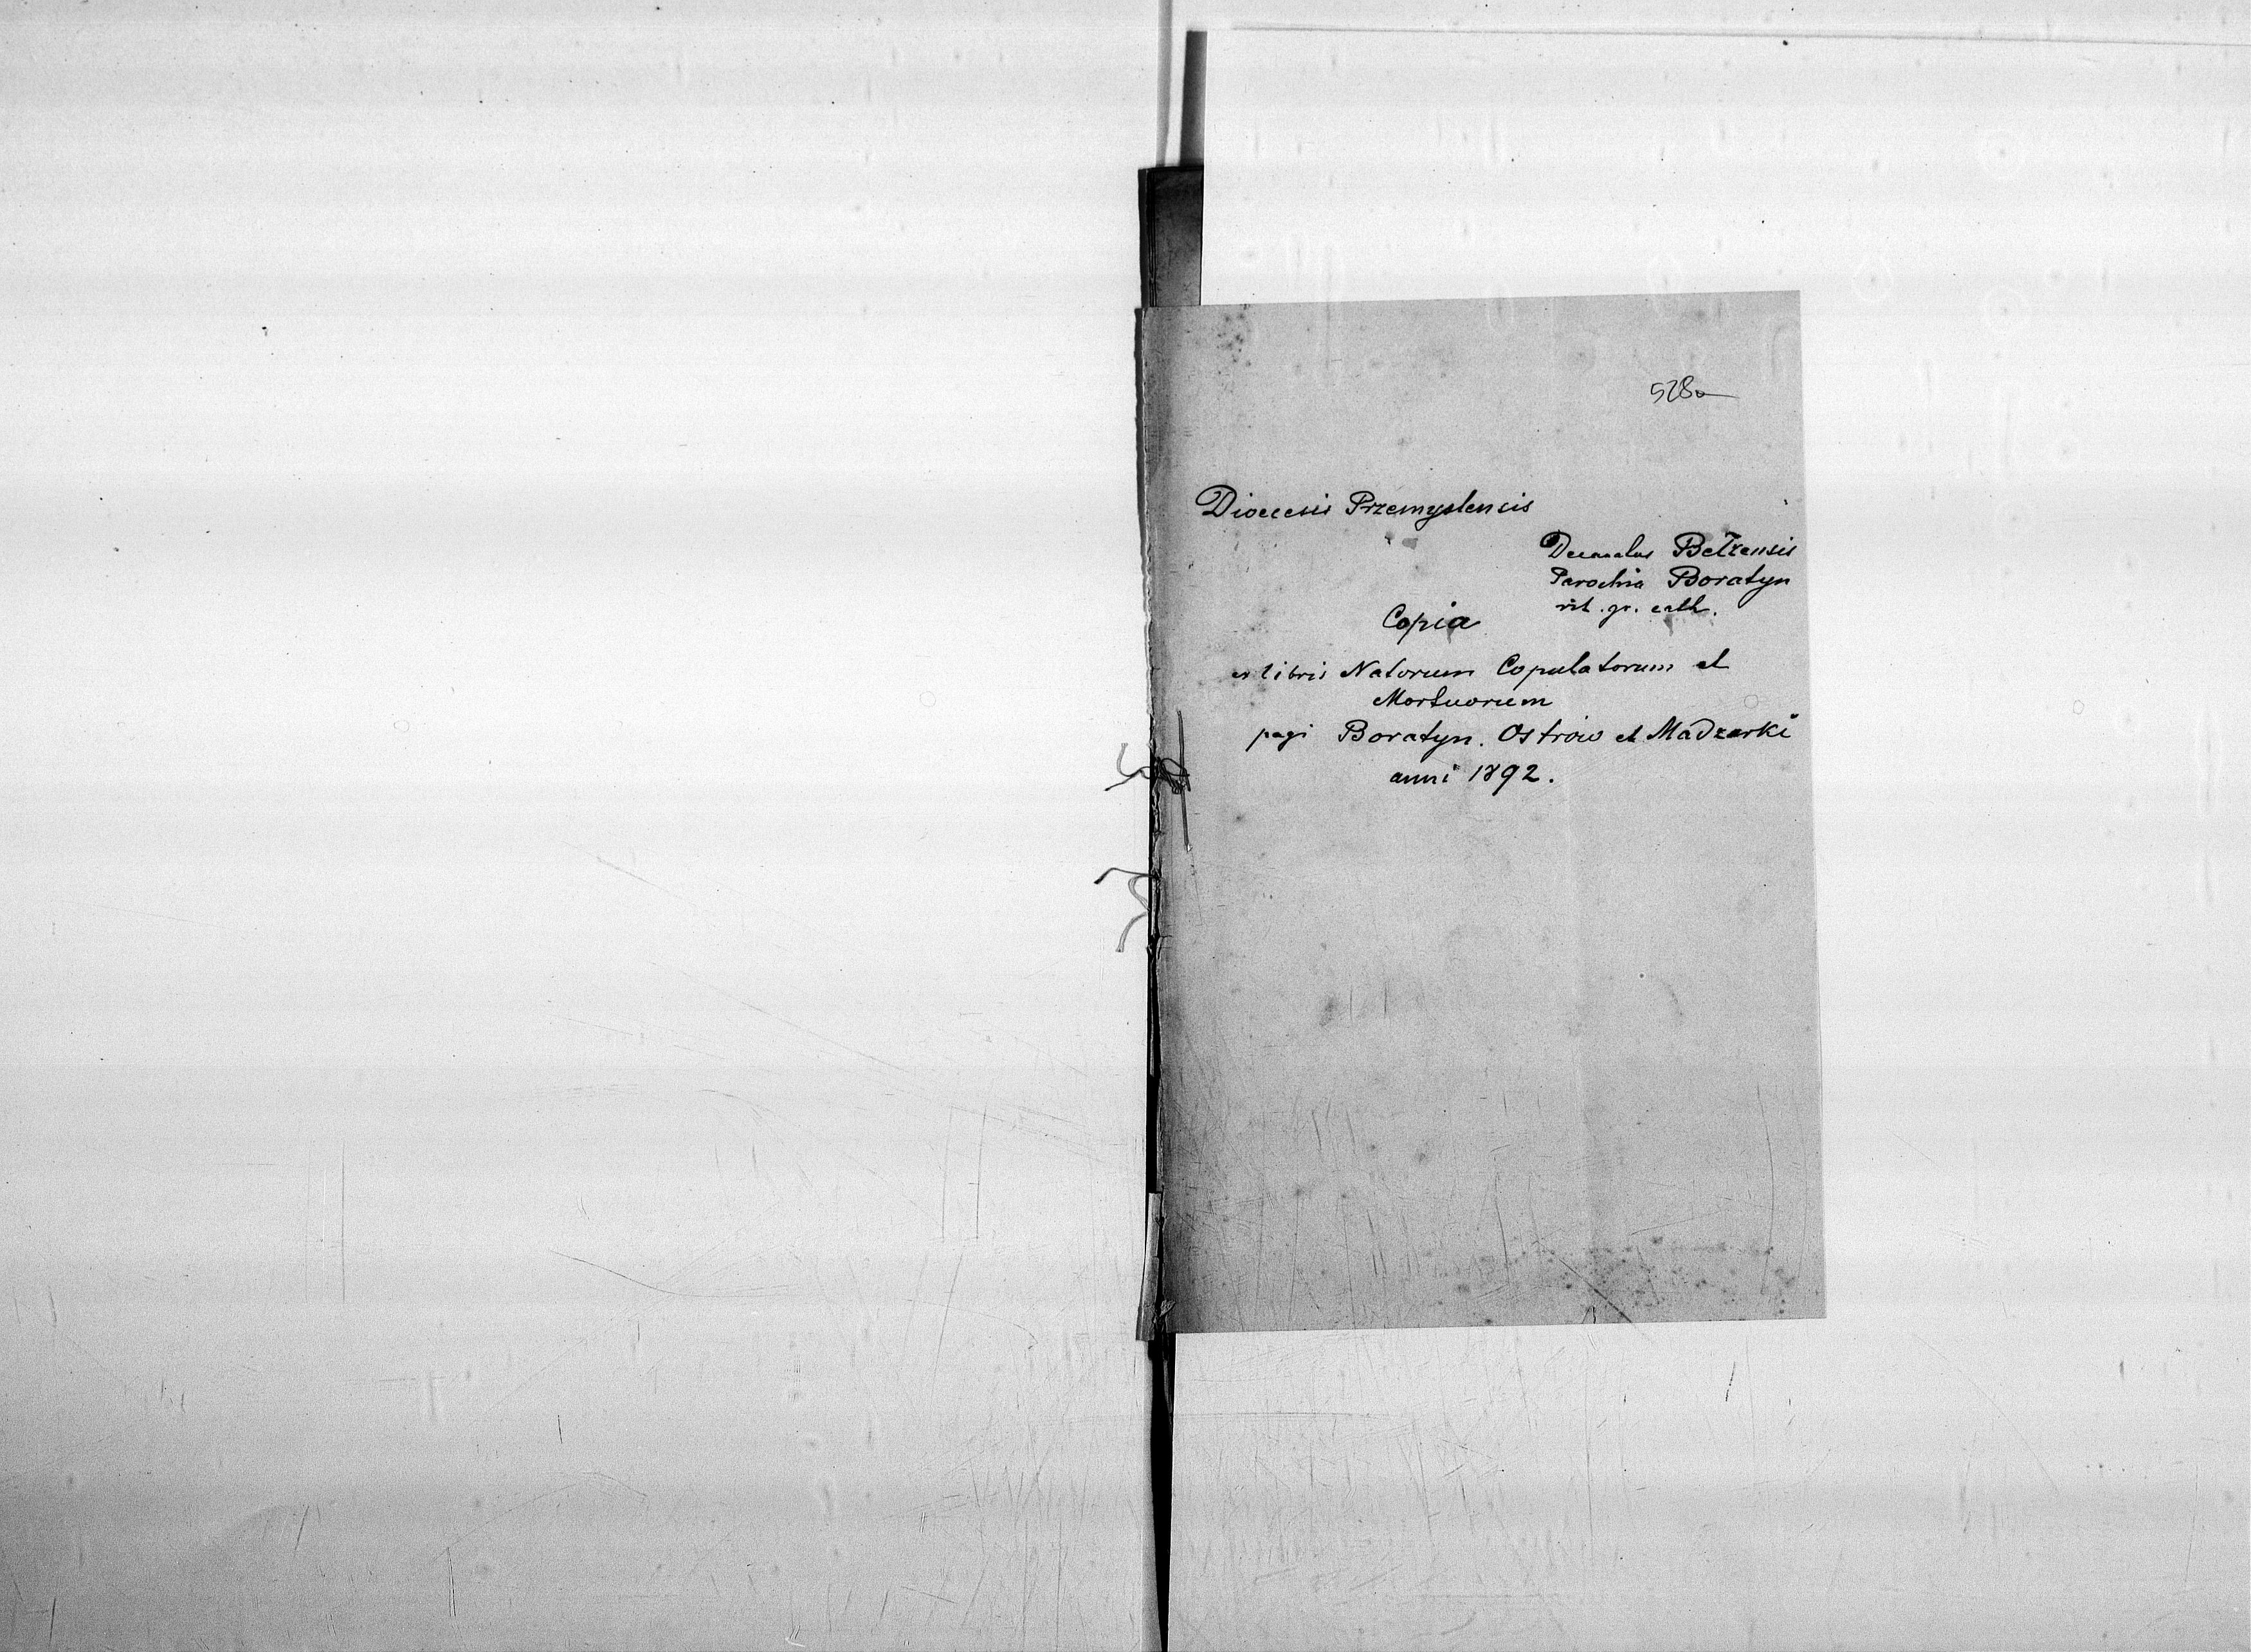 528a
Dioecesis Przemyslensis
Decanatus Bełzensis
Parochia Boratyn
rit. gr. cath.
Copia
ex libris Natorum Copulatorum et
Mortuorum
pagi Boratyn. Ostrów et Madziarki
anni 1892.